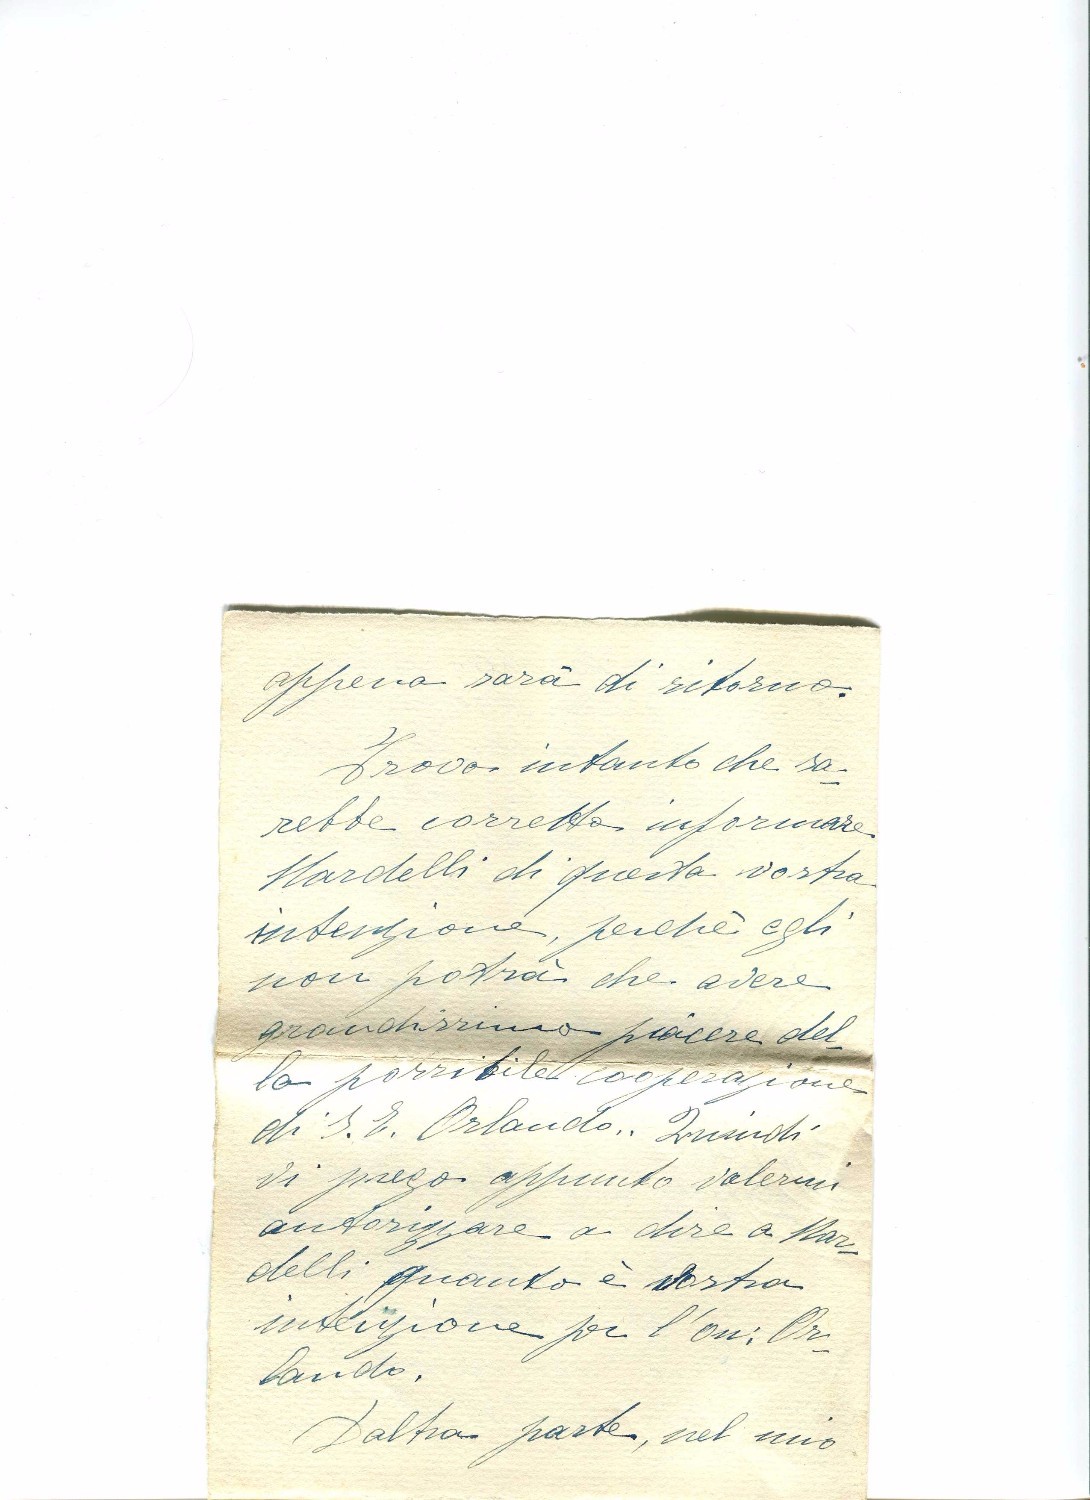 appena sarà di ritorno.
Trovo intanto che sa-
rebbe corretto informare
Nardelli di questa vostra
intenzione, perchè egli
non potrà che avere
grandissimo piacere del-
la possibile cooperazione
di S. E. Orlando.. Quindi
vi prego appunto volermi
autorizzare a dire a Nar-
delli quanto è vostra
intenzione per l'on: Or-
lando.
Daltra parte, nel mio